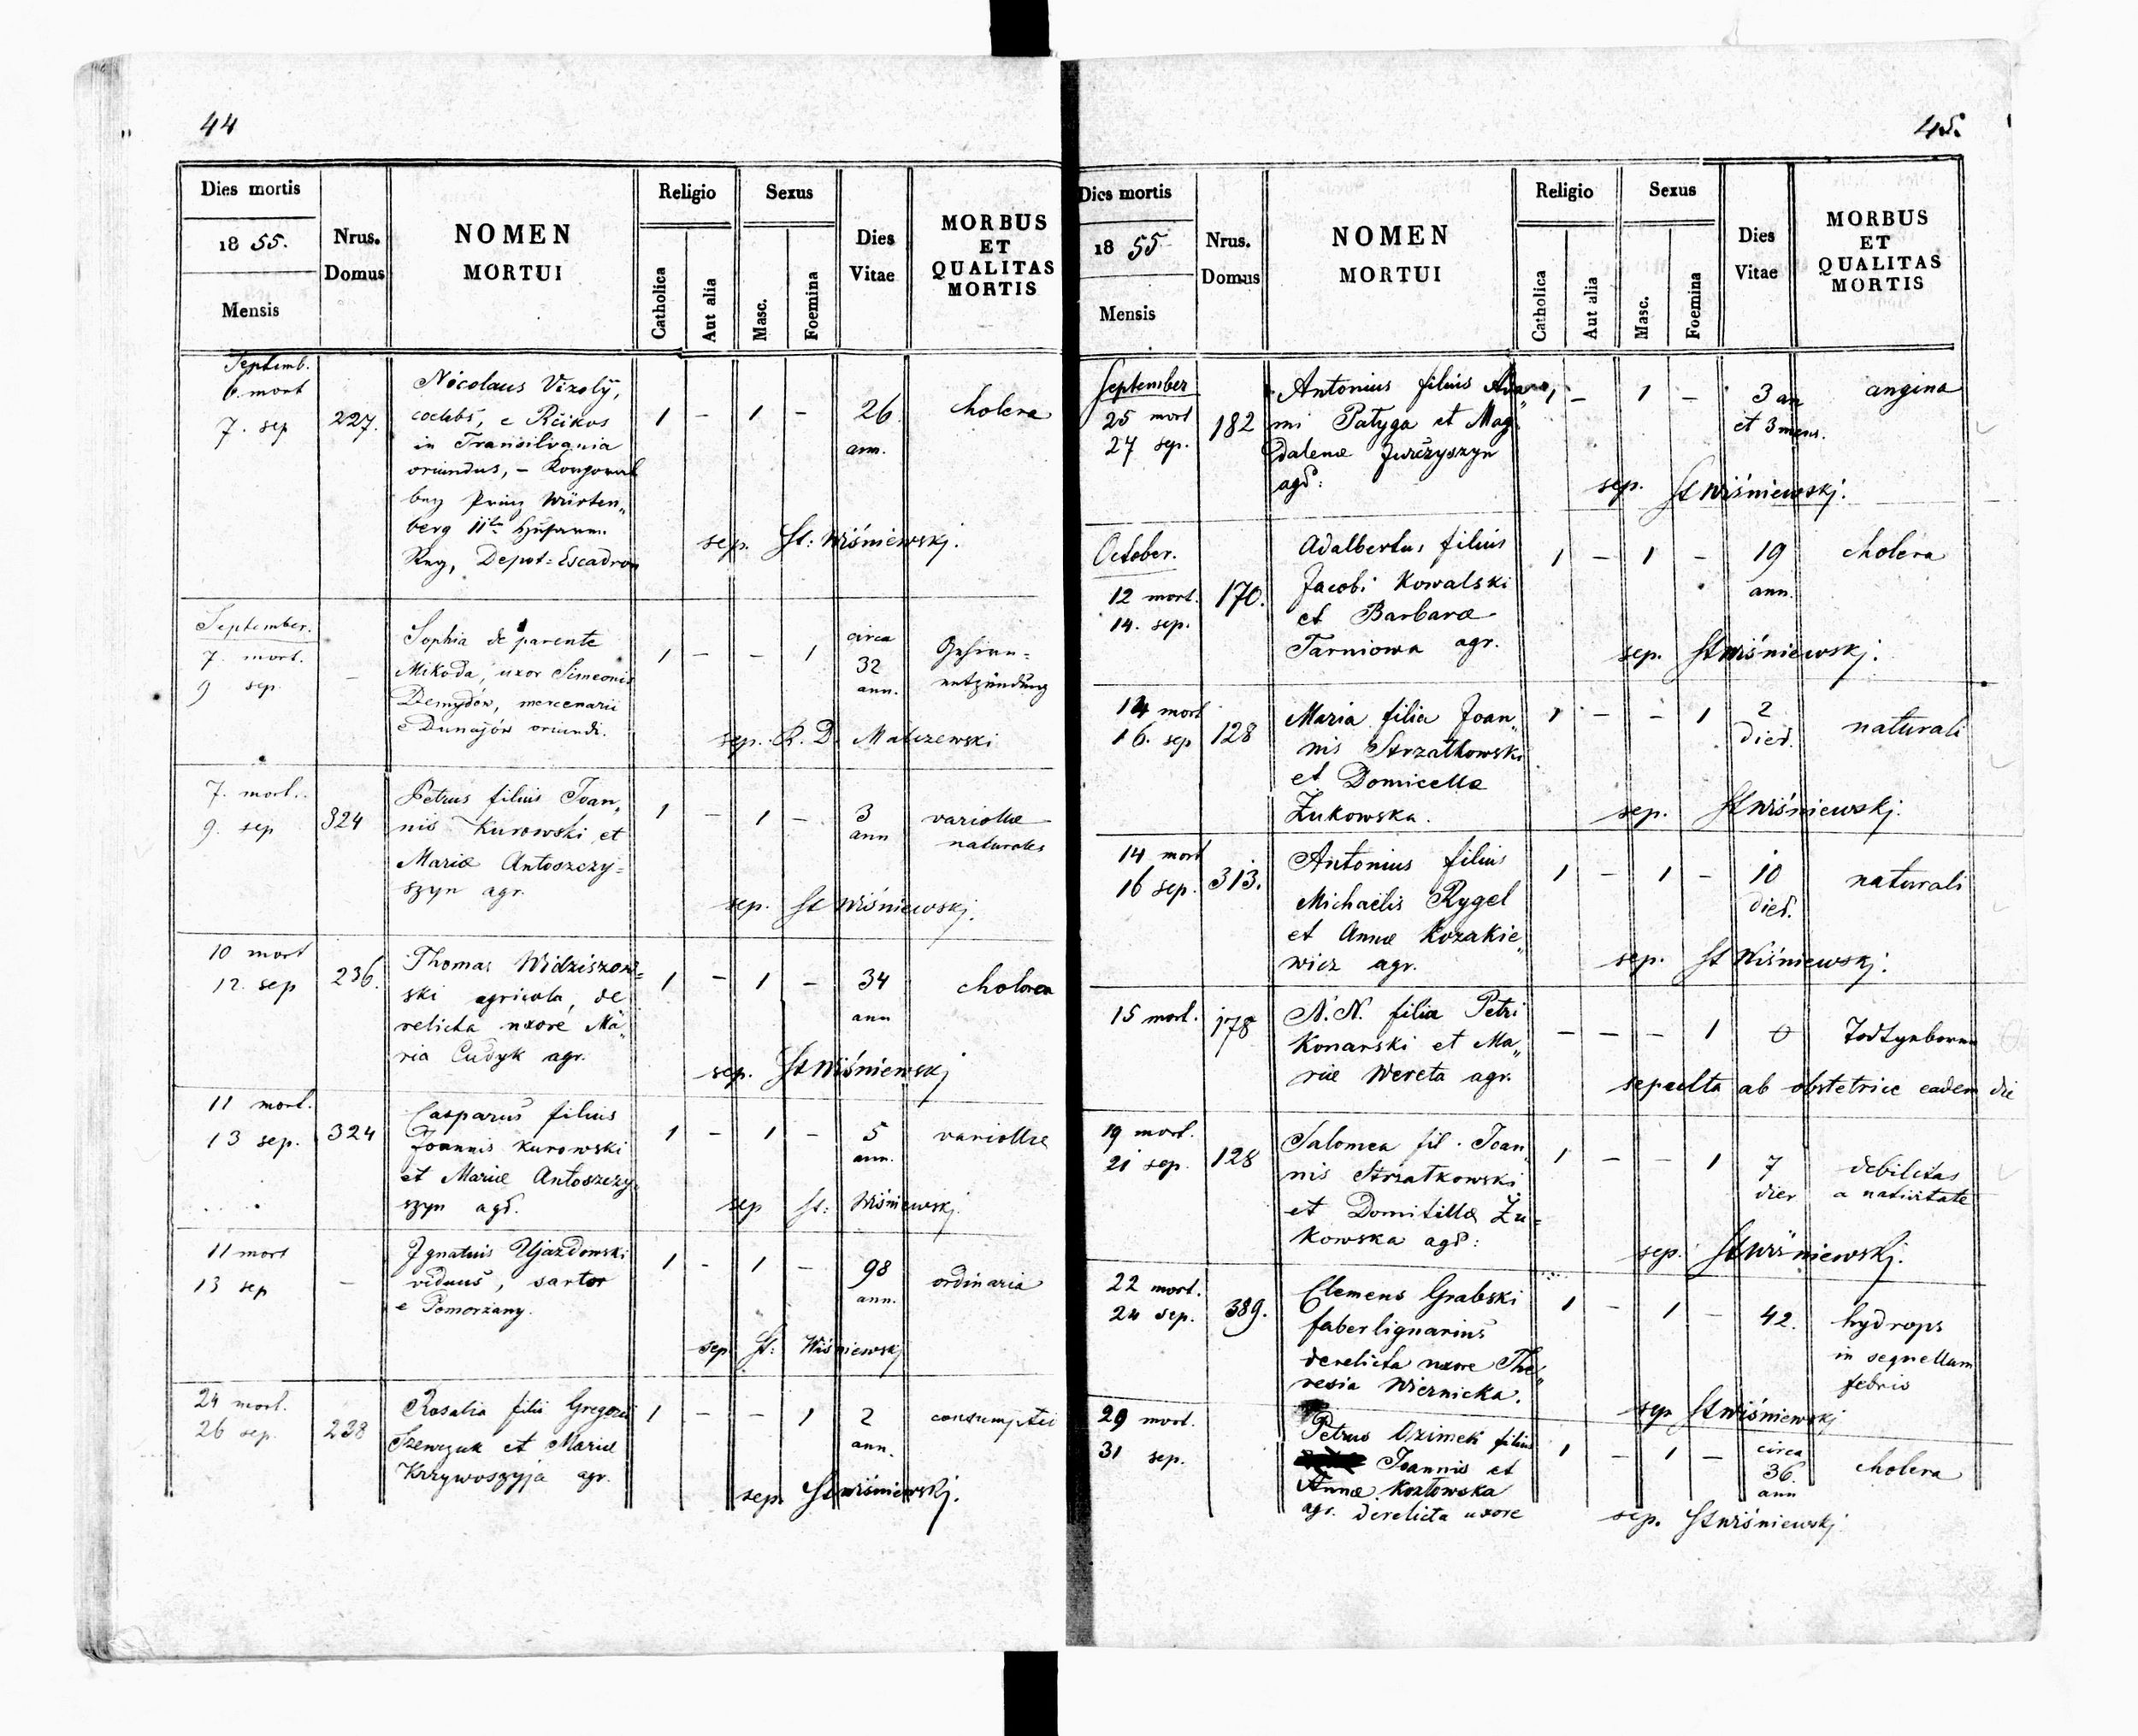 44
Dies mortis
1855.
Mensis
Nrus.
Domus
NOMEN
MORTUI
Religio
Catholica
Aut alia
Sexus
Masc.
Foemina
Dies
Vitae
MORBUS
ET
QUALITAS
MORTIS
Septemb.
6 mort
7. sep
227.
Nicolaus Vizolÿ,
coelebs, e Reikos
in Transilvania
oriundus, –
bey Prinz Würten„
berg 11te
Reg, Depot=Escadron
1 – 1 –
26
ann.
cholera
sep. St: Wiśniewskj.
September.
7. mort.
9 sep
–
Sophia de parente
Mikoda, uxor Simeonis
Demydów, mercenarii
e Dunajów oriundi.
1 – – 1
circa
32
ann.
Gehirn=
entzündung
sep. R. D. Malczewski
7. mort.
9. sep
324
Petrus filius Joan„
nis Kurowski et
Mariæ Antoszczy=
szyn agr.
1 – 1 –
3
ann
variollæ
naturales
sep. St Wiśniewskj.
10 mort
12. sep
236.
Thomas Widziszow=
ski agricola, de
relicta uxore Ma„
ria Cudyk agr.
1 – 1 –
34
ann
cholera
sep. St Wiśniewskj
11 mort.
13 sep.
324
Casparus filius
Joannis Kurowski
et Mariæ Antoszczy„
szyn agr.
1 – 1 –
5
ann.
variollæ
sep St: Wiśniewskj
11 mort
13 sep
–
Ignatius Ujazdowski
viduus, sartor
e Pomorzany.
1 – 1 –
98
ann.
ordinaria
sep St: Wiśniewskj
24 mort.
26 sep.
238
Rosalia filii Gregorii
Szewczuk et Mariæ
Krzywoszyja agr.
1 – – 1
2
ann.
sep. St Wiśniewskj.
45.
Dies mortis
1855
Mensis
Nrus.
Domus
NOMEN
MORTUI
Religio
Catholica
Aut alia
Sexus
Masc.
Foemina
Dies
Vitae
MORBUS
ET
QUALITAS
MORTIS
September
25 mort
27 sep.
182
Antonius filius Ada
mi Patyga et Mag„
dalenæ Jurczyszyn
agr:
1 – 1 –
3 an
et 3 mens.
angina
sep. St Wiśniewskj.
October.
12 mort.
14. sep.
170.
Adalbertus filius
Jacobi Kowalski
et Barbaræ
Tarniowa agr.
1 – 1 –
19
ann.
cholera
sep. St Wiśniewskj.
14 mort
16. sep
128
Maria filia Joan„
nis Strzałkowski
et Domicellæ
Żukowska.
1 – – 1
2
dier.
naturali
sep. St Wiśniewskj.
14 mort
16 sep.
313.
Antonius filius
Michaelis Rygel
et Annæ Kozakie„
wicz agr.
1 – 1 –
10
dier.
naturali
sep. St Wiśniewskj.
15 mort.
178
N. N. filia Petri
Konarski et Ma„
riæ Wereta agr.
– – – 1
0
Todtgeboren
sepulta ab obstetrice eadem die
19 mort.
21 sep.
128
Salomea fil. Joan„
nis Strzałkowski
et Domitillæ Żu=
kowska agr:
1 – – 1
7
dier
debilitas
a nativitate
sep. St Wiśniewskj.
22 mort.
24 sep.
389.
Clemens Grabski
faber lignarius
derelicta uxore The„
resia Wiernicka.
1 – 1 –
42.
hydrops
in sequellam
febris
sep St Wiśniewskj
29 mort.
31 sep.
Petrus Ozimek filius
Joannis et
Annæ Kozłowska
agr. derelicta uxore
1 – 1 –
circa
36.
ann
cholera
sep. St Wiśniewskj